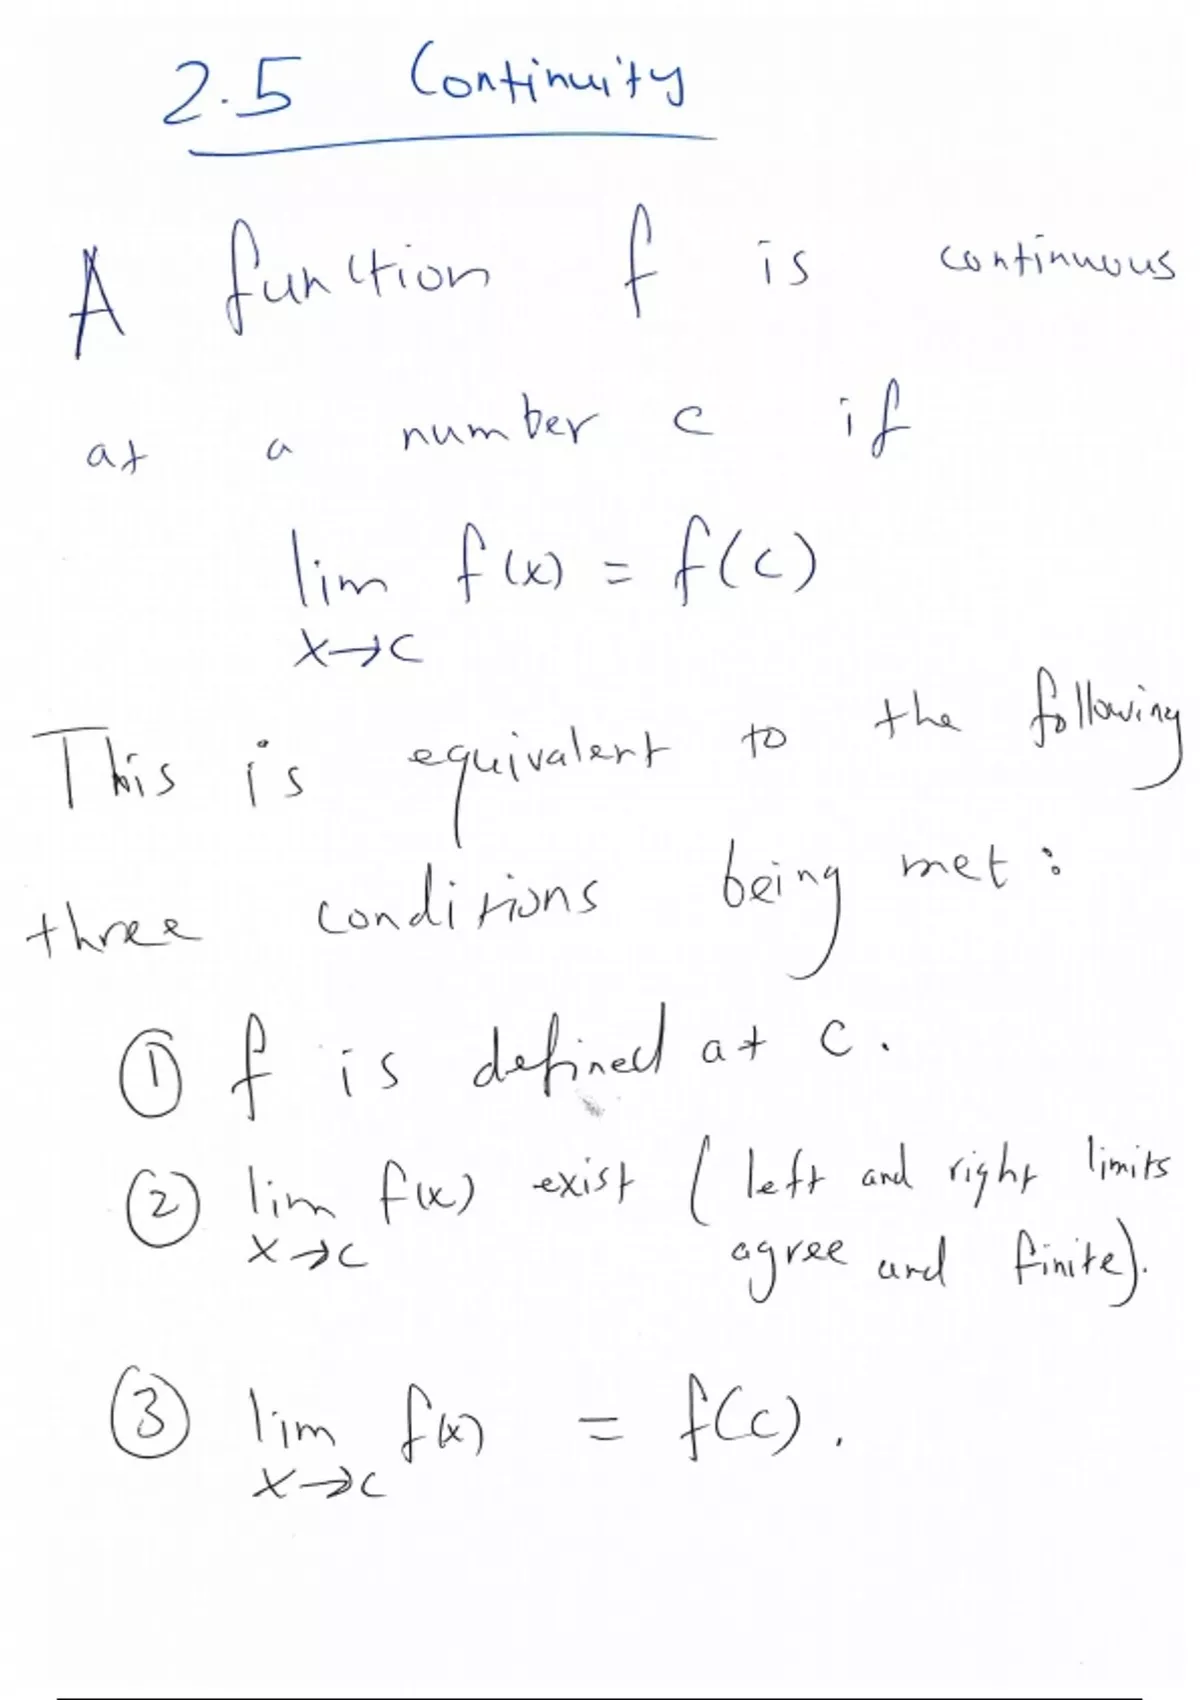 2.5 Continuity
A function f is continuous
at a number c if
lim f(x) = f(c)
x→c
This is equivalent to the following
three conditions being met:
① f is defined at c.
② lim f(x) exist (left and right limits
x→c agree and finite).
③ lim f(x) = f(c).
x→c